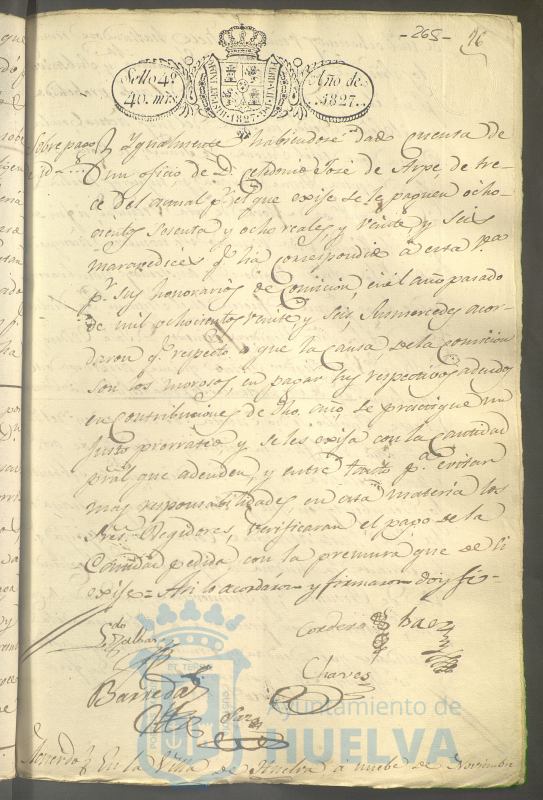 -265- 96
Sello 4º
40. mrs.
HISPET INDIAR
1827
Año de
1827.
Sobre pago Ygualmente habiendose dado cuenta de
un oficio de D. Celedonio José de Arpe, de tre-
ce del actual pr. el que exije se le paguen ocho-
cientos sesenta y ocho reales, y veinte y seis
maravedices qe. ha correspondido a esta va.
pr. sus honorarios de Comision, en el año pasado
de mil ochocientos veinte y seis, Susmercedes acor-
daron qe. respecto a que la causa de la comision
son los morosos, en pagar sus respectivos adeudos
en contribuciones de dho. año, se practique un
justo prorrateo, y se les exija con la cantidad
pral que adeuden, y entre tanto pa. evitar
mas responsabilidades, en esta materia los
Sres. Regidores, verificaran el pago de la
Cantidad pedida con la premura que se
exije = Asi lo acordaron y firmaron doy fe =
Cordero Baez
Barreda Chaves
Paz
Ayuntamiento de
HUELVA
Acuerdo En la Villa de Huelva á nuebe de Noviembre